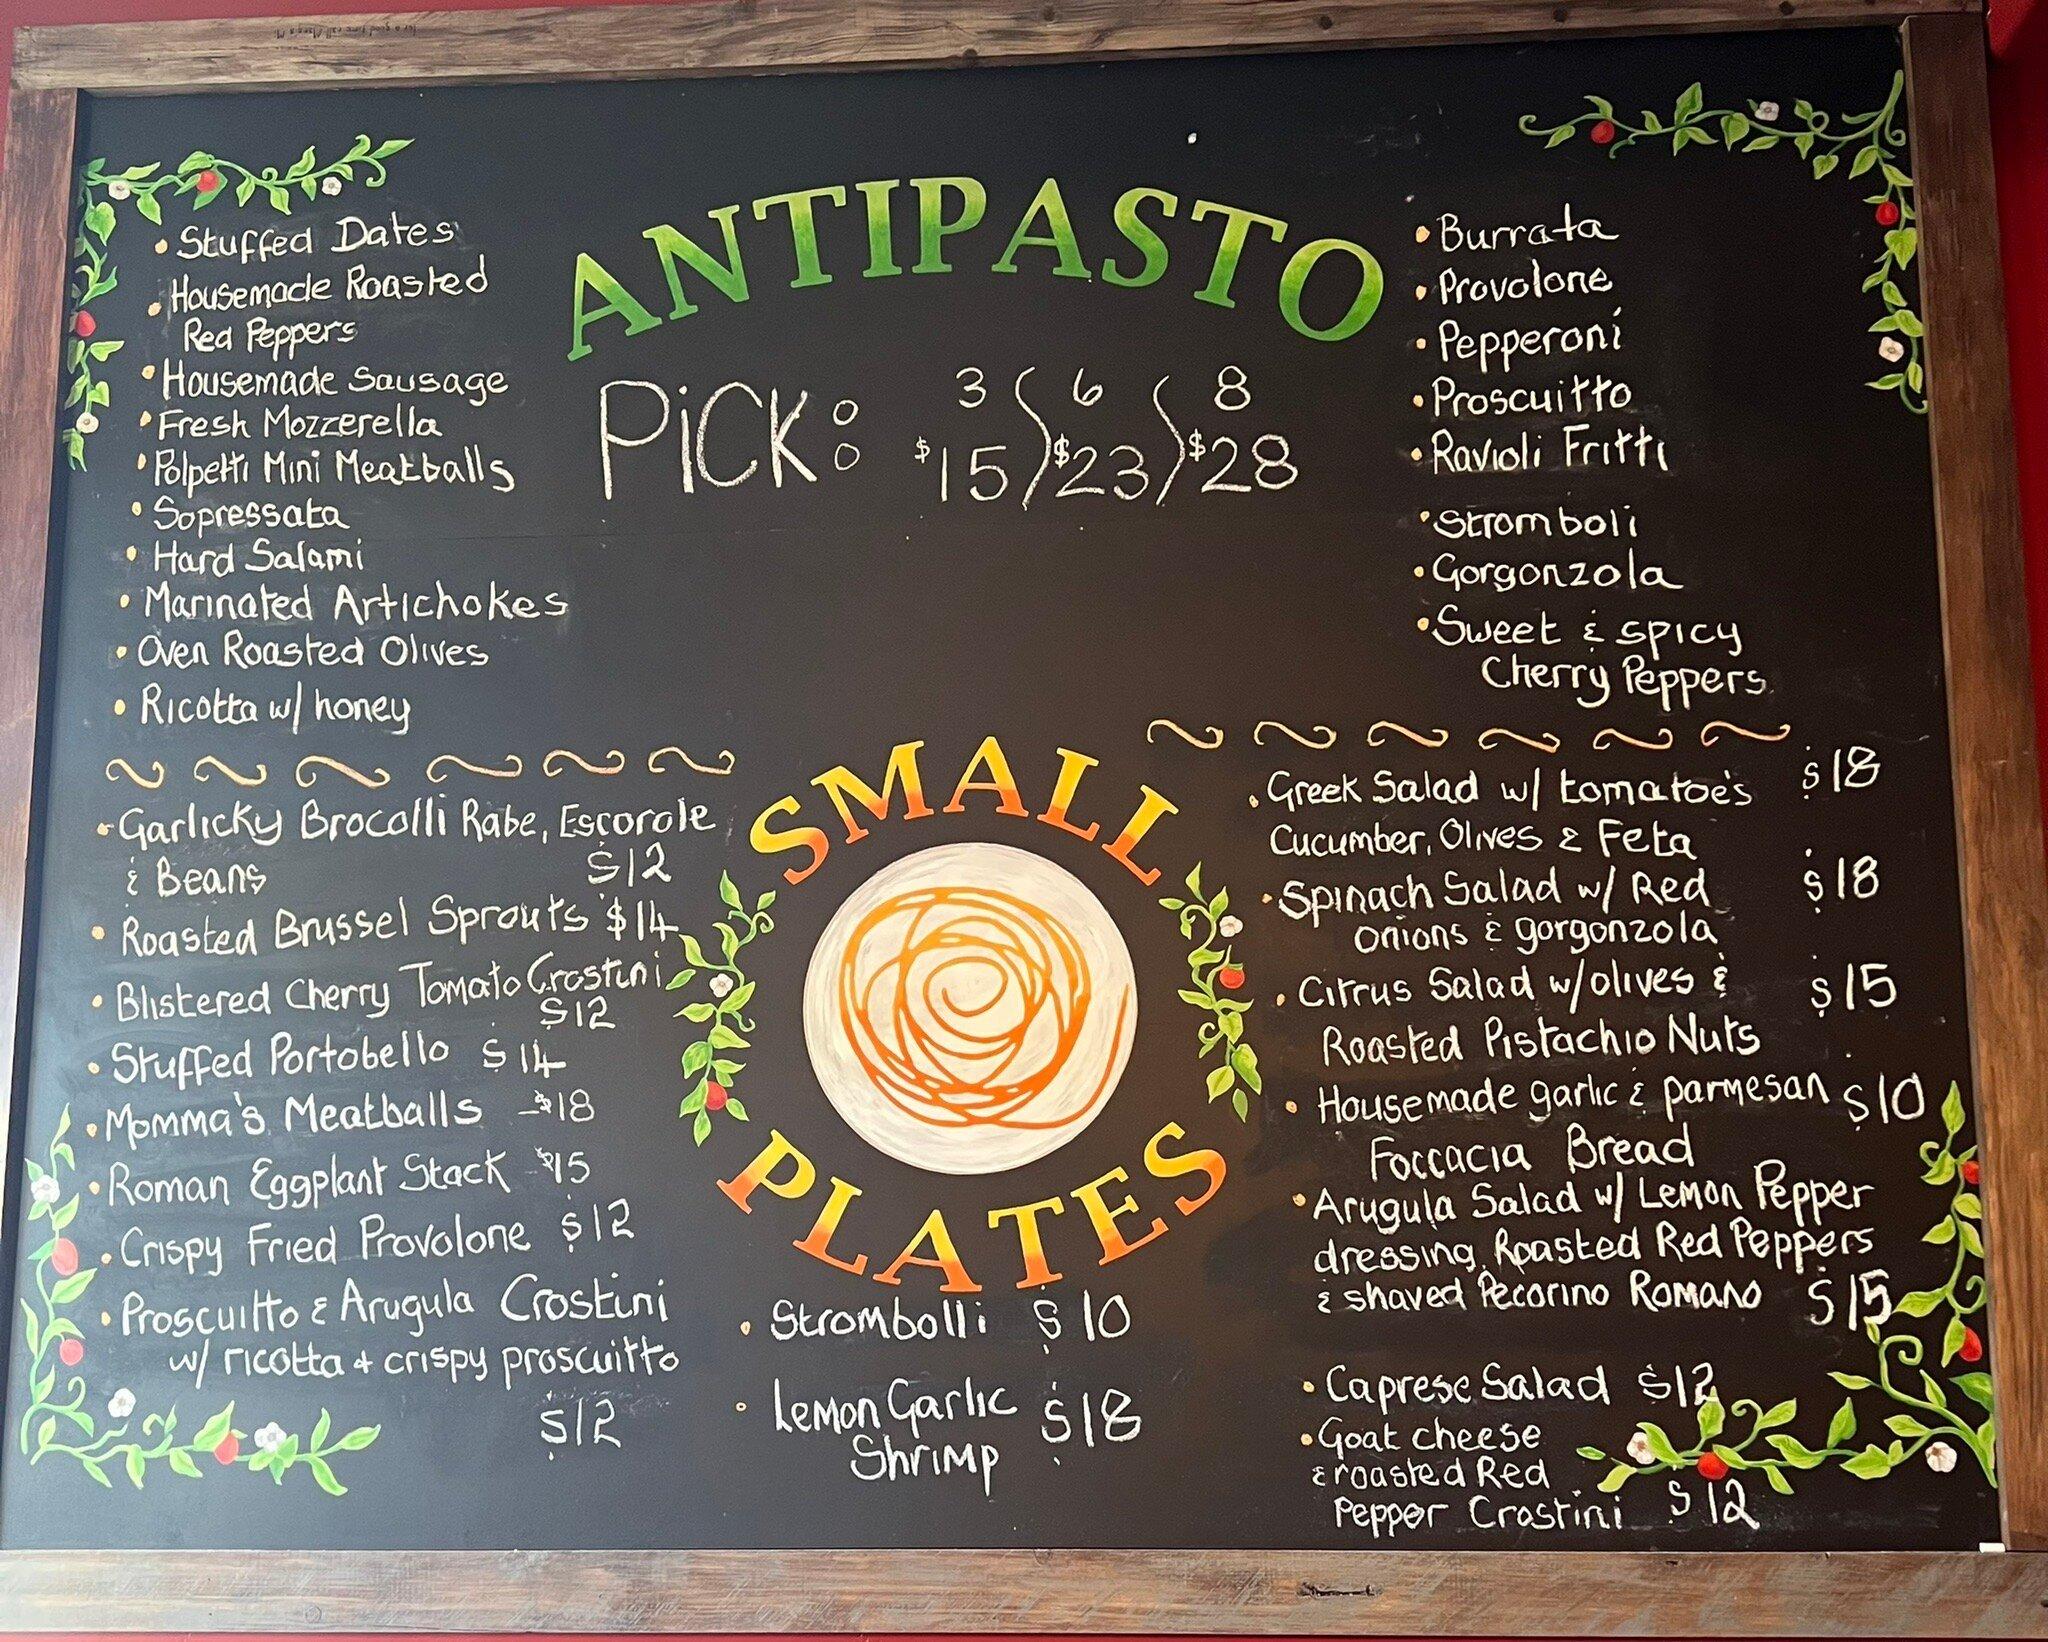 ANTIPASTO
PiCK: 3 6 8
$15 $23 $28
• Stuffed Dates
• Housemade Roasted
Red Peppers
• Housemade Sausage
• Fresh Mozzerella
• Polpetti Mini Meatballs
• Sopressata
• Hard Salami
• Marinated Artichokes
• Oven Roasted Olives
• Ricotta w/ honey
• Burrata
• Provolone
• Pepperoni
• Proscuitto
• Ravioli Fritti
• Stromboli
• Gorgonzola
• Sweet & spicy
Cherry Peppers
SMALL
PLATES
• Garlicky Brocolli Rabe, Escorole
& Beans $12
• Roasted Brussel Sprouts $14
• Blistered Cherry Tomato Crostini
$12
• Stuffed Portobello $14
• Momma's Meatballs $18
• Roman Eggplant Stack $15
• Crispy Fried Provolone $12
• Proscuitto & Arugula Crostini
w/ ricotta + crispy proscuitto
$12
• Strombolli $10
• Lemon Garlic $18
Shrimp
• Greek Salad w/ tomatoe's $18
Cucumber, Olives & Feta
• Spinach Salad w/ Red $18
onions & gorgonzola
• Citrus Salad w/olives & $15
Roasted Pistachio Nuts
• Housemade garlic & parmesan $10
Foccacia Bread
• Arugula Salad w/ Lemon Pepper
dressing, Roasted Red Peppers
& shaved Pecorino Romano $15
• Caprese Salad $12
• Goat cheese
& roasted Red
Pepper Crostini $12